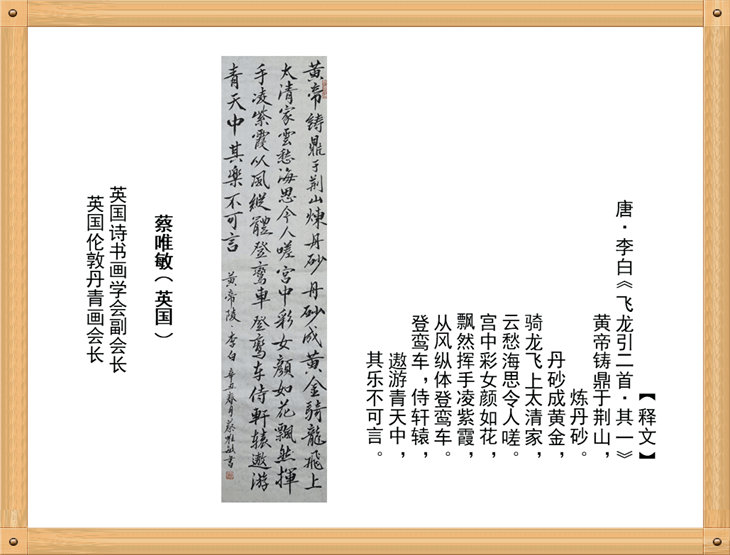 【释文】
唐·李白《飞龙引二首·其一》
黄帝铸鼎于荆山，
炼丹砂。
丹砂成黄金，
骑龙飞上太清家，
云愁海思令人嗟。
宫中彩女颜如花，
飘然挥手凌紫霞，
从风纵体登鸾车。
登鸾车，侍轩辕，
遨游青天中，
其乐不可言。
黄帝铸鼎于荆山煉丹砂丹砂成黄金騎龍飛上
太清家雲愁海思令人嗟宫中彩女顔如花飄然揮
手凌紫霞从風縱體登鸾車登鸾车侍軒辕遨游
青天中其樂不可言
黄帝陵·李白 辛丑春月蔡唯敏书
蔡唯敏（英国）
英国诗书画学会副会长
英国伦敦丹青画会长